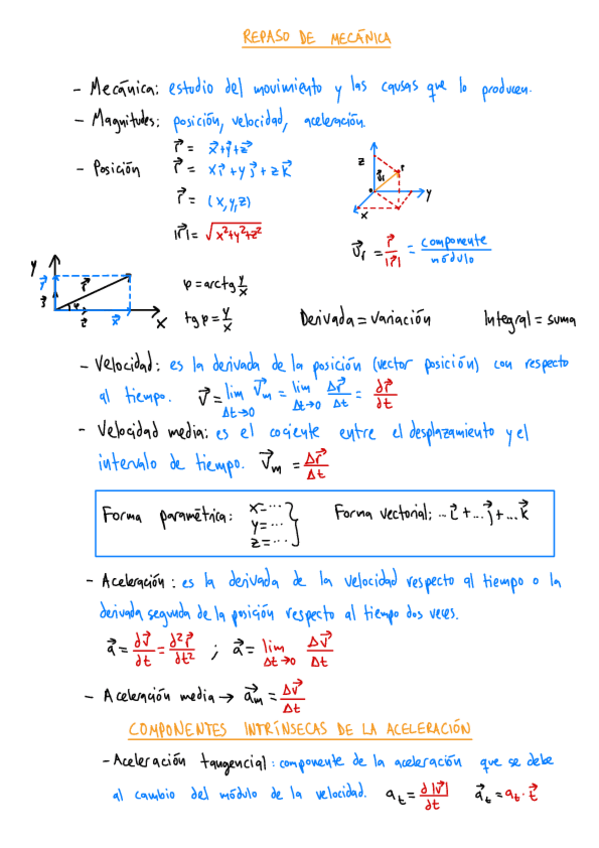 REPASO DE MECÁNICA
- Mecánica: estudio del movimiento y las causas que lo producen.
- Magnitudes: posición, velocidad, aceleración.
- Posición r⃗ = x⃗+y⃗+z⃗
r⃗ = xi⃗+yj⃗+zk⃗
r⃗ = (x,y,z)
|r⃗| = √x²+y²+z²
z
y
x
r
u⃗r = r⃗/|r⃗| = componente/módulo
y
x
φ = arctg y/x
tg φ = y/x
Derivada = variación Integral = suma
- Velocidad: es la derivada de la posición (vector posición) con respecto
al tiempo. v⃗ = lim Δt→0 v⃗m = lim Δt→0 Δr⃗/Δt = dr⃗/dt
- Velocidad media: es el cociente entre el desplazamiento y el
intervalo de tiempo. v⃗m = Δr⃗/Δt
Forma paramétrica: x=... y=... z=... Forma vectorial: ...i⃗+...j⃗+...k⃗
- Aceleración: es la derivada de la velocidad respecto al tiempo o la
derivada segunda de la posición respecto al tiempo dos veces.
a⃗ = dv⃗/dt = d²r⃗/dt² ; a⃗ = lim Δt→0 Δv⃗/Δt
- Aceleración media → a⃗m = Δv⃗/Δt
COMPONENTES INTRÍNSECAS DE LA ACELERACIÓN
- Aceleración tangencial: componente de la aceleración que se debe
al cambio del módulo de la velocidad. at = d|v⃗|/dt a⃗t = at · t⃗